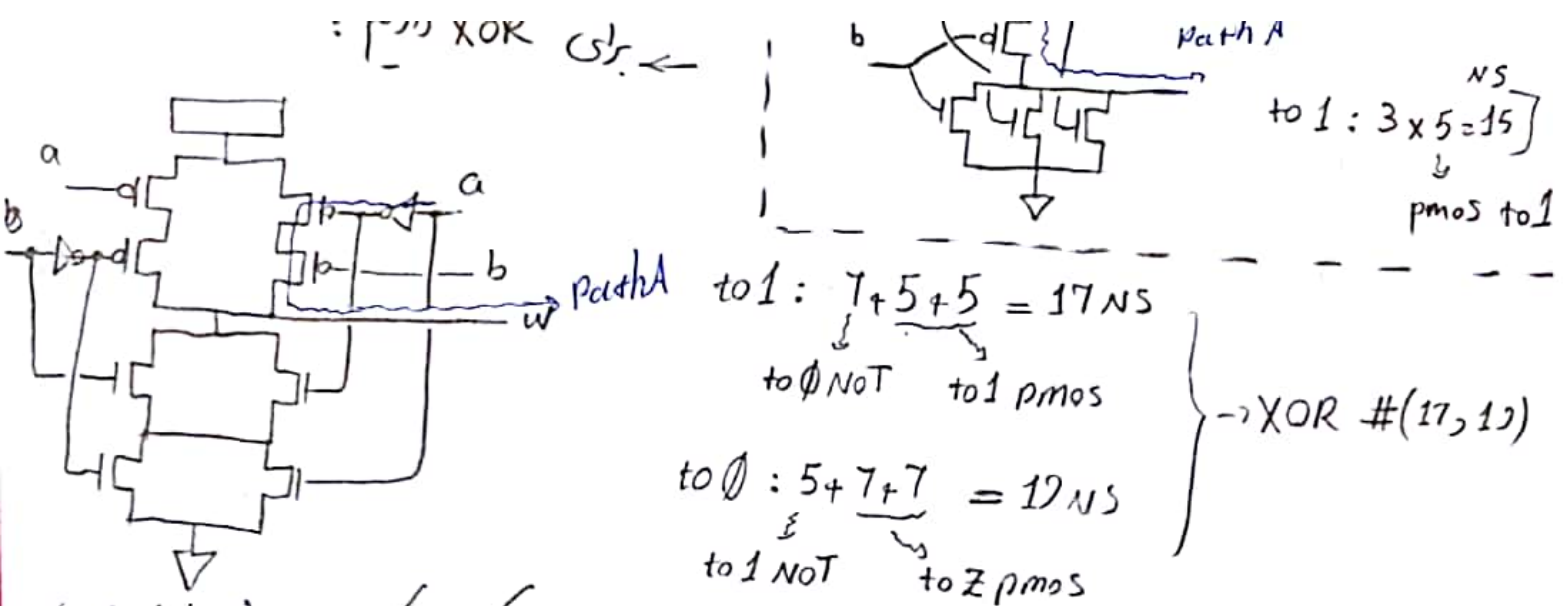 ← برای XOR داریم :
a
b
a
b
w
path A
b
path A
NS
to 1 : 3 x 5 = 15
pmos to 1
to 1 : 7 + 5 + 5 = 17 NS
to ϕ NOT to 1 pmos
to ϕ : 5 + 7 + 7 = 19 NS
to 1 NOT to Z pmos
→ XOR #(17, 19)